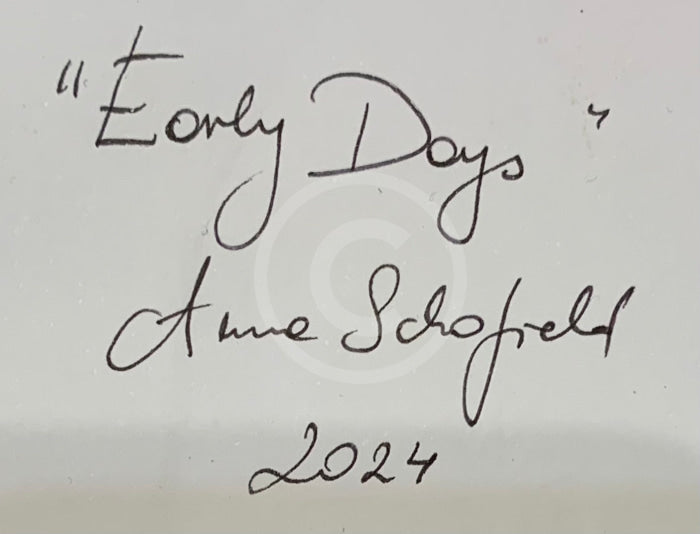 "Early Days"
Anna Schofield
2024